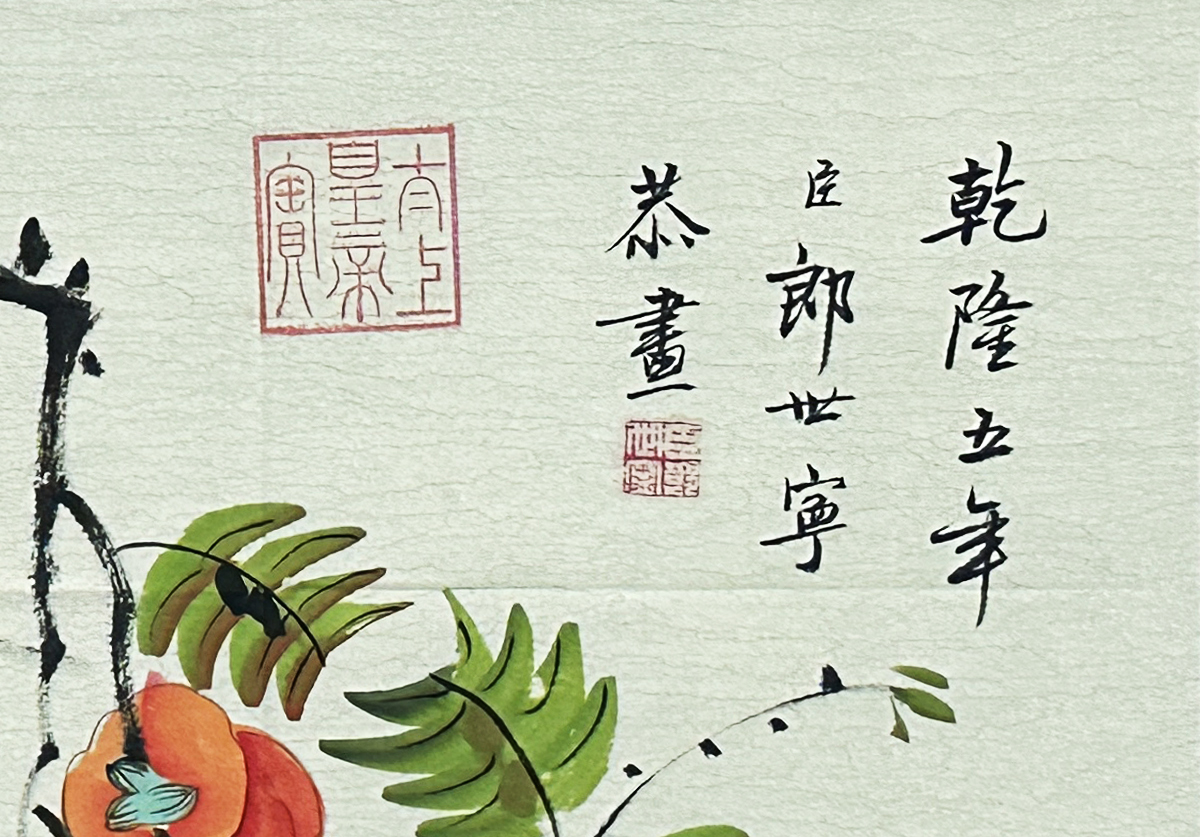 乾隆五年
臣郎世寧
恭畫
太上
皇帝
之寶